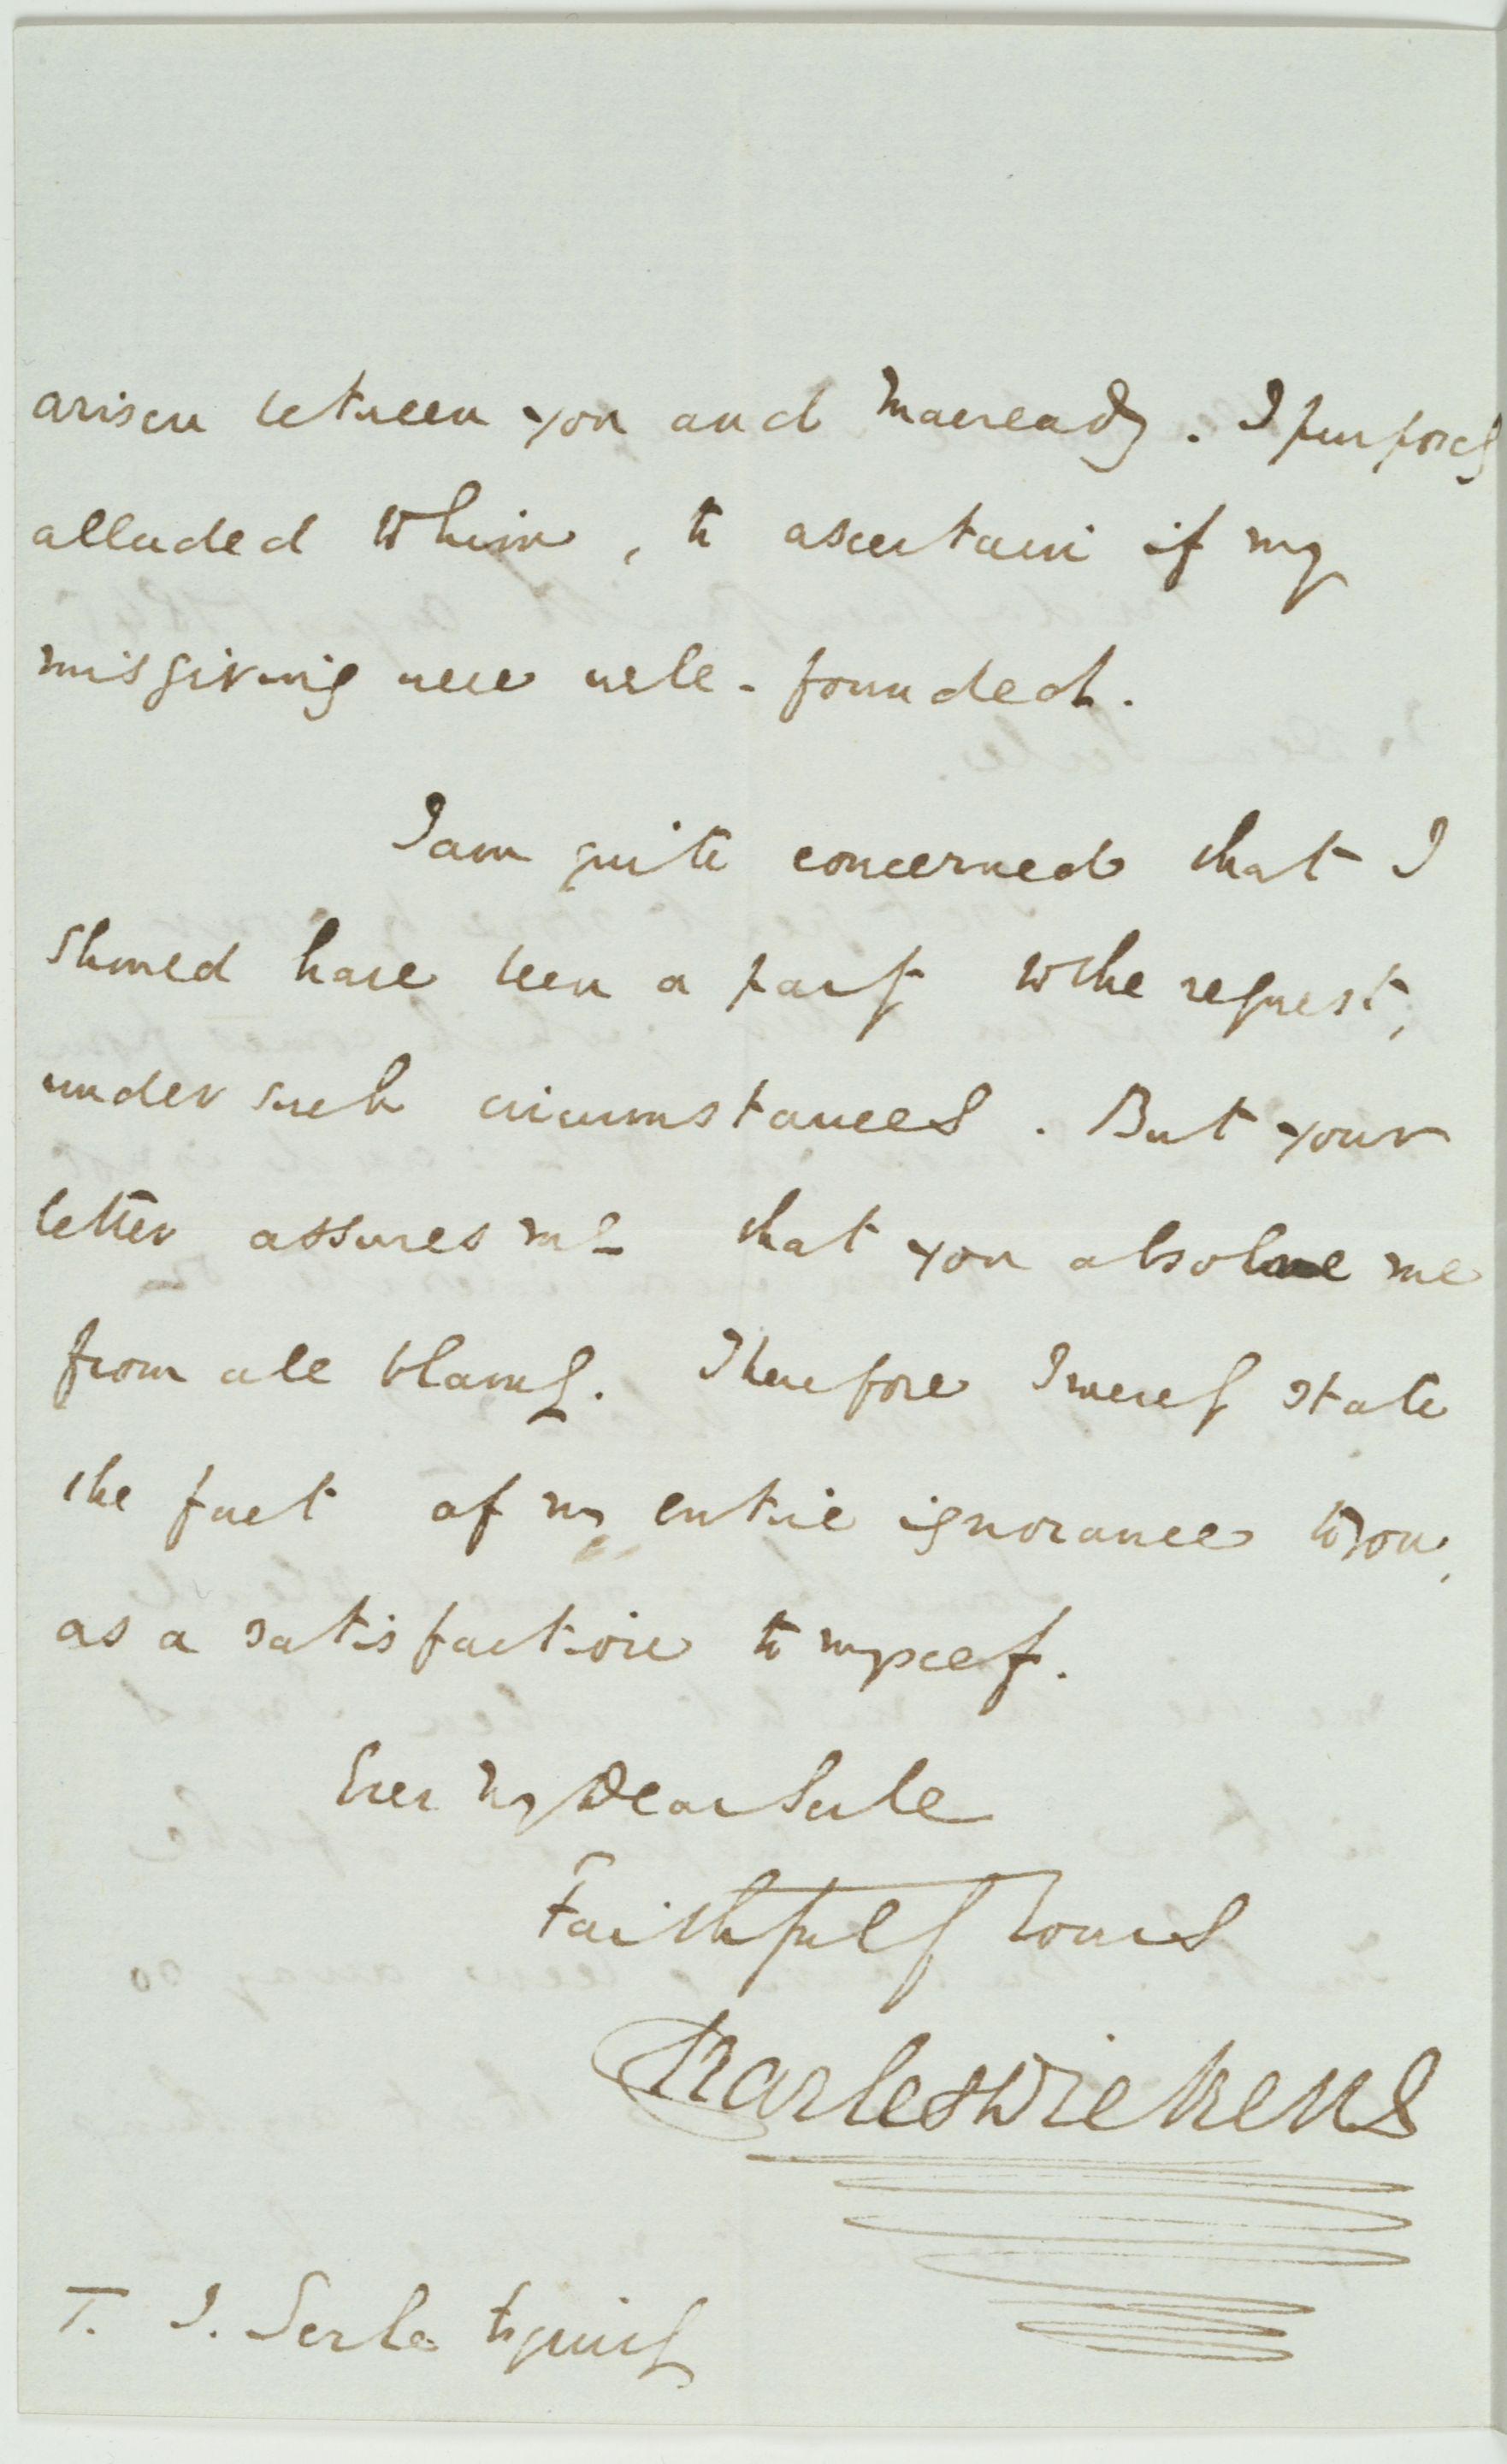 arisen between you and Macready. I purposely
alluded to him, to ascertain if my
misgiving were well-founded.
I am quite concerned that I
should have been a party to the request,
under such circumstances. But your
letter assures me that you absolve me
from all blame. Therefore I merely state
the fact of my entire ignorance to you,
as a satisfaction to myself.
Ever My Dear Serle
Faithfully Yours
Charles Dickens
T. J. Serle Esquire